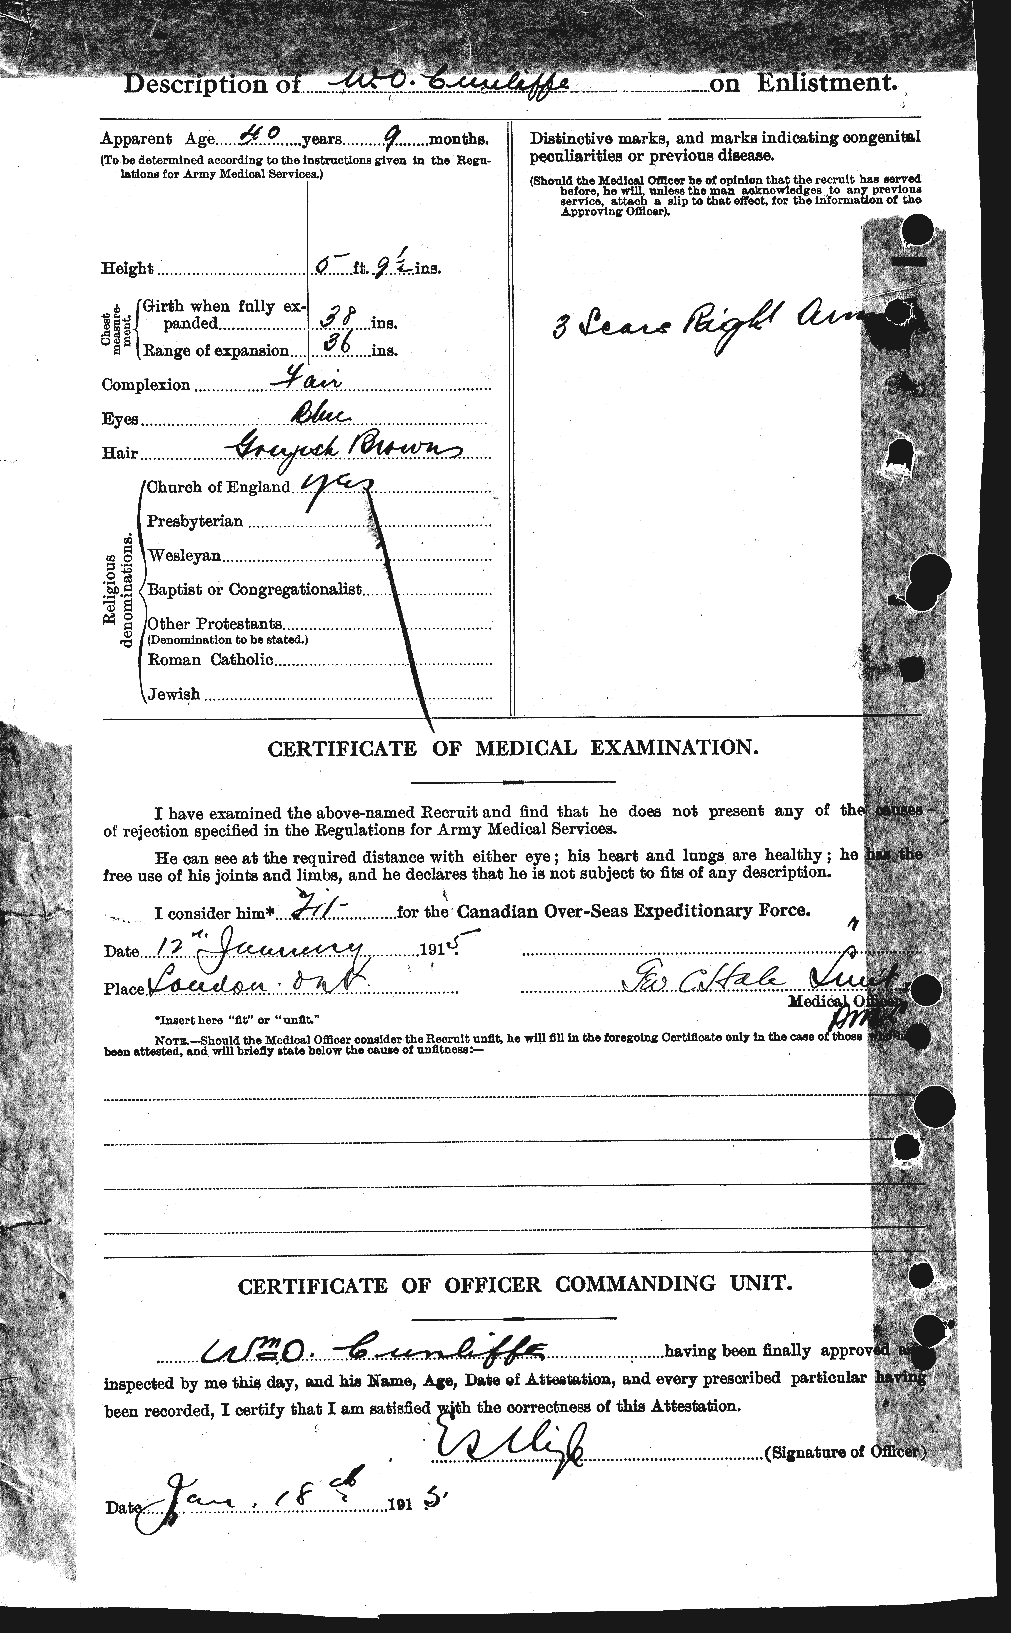 Description of W.O. Cunliffe on Enlistment.
Apparent Age 40 years 9 months.
(To be determined according to the instructions given in the Regu-
lations for Army Medical Services.)
Height 5 ft. 9½ ins.
Chest measure-ment.
Girth when fully ex-
panded 38 ins.
Range of expansion 36 ins.
Complexion Fair
Eyes Blue
Hair Greyish Brown
Religious denominations.
Church of England yes
Presbyterian
Wesleyan
Baptist or Congregationalist
Other Protestants
(Denomination to be stated.)
Roman Catholic
Jewish
Distinctive marks, and marks indicating congenital
peculiarities or previous disease.
(Should the Medical Officer be of opinion that the recruit has served
before, he will, unless the man acknowledges to any previous
service, attach a slip to that effect, for the information of the
Approving Officer).
3 Scars Right Arm
CERTIFICATE OF MEDICAL EXAMINATION.
I have examined the above-named Recruit and find that he does not present any of the causes
of rejection specified in the Regulations for Army Medical Services.
He can see at the required distance with either eye; his heart and lungs are healthy; he has the
free use of his joints and limbs, and he declares that he is not subject to fits of any description.
I consider him* Fit for the Canadian Over-Seas Expeditionary Force.
Date 12th January 1915
Place London Ont. C Hale Lieut
Medical Officer
*Insert here "fit" or "unfit."
NOTE.—Should the Medical Officer consider the Recruit unfit, he will fill in the foregoing Certificate only in the case of those who have
been attested, and will briefly state below the cause of unfitness:—
CERTIFICATE OF OFFICER COMMANDING UNIT.
Wm O. Cunliffe having been finally approved and
inspected by me this day, and his Name, Age, Date of Attestation, and every prescribed particular having
been recorded, I certify that I am satisfied with the correctness of this Attestation.
(Signature of Officer)
Date Jan. 18th 1915